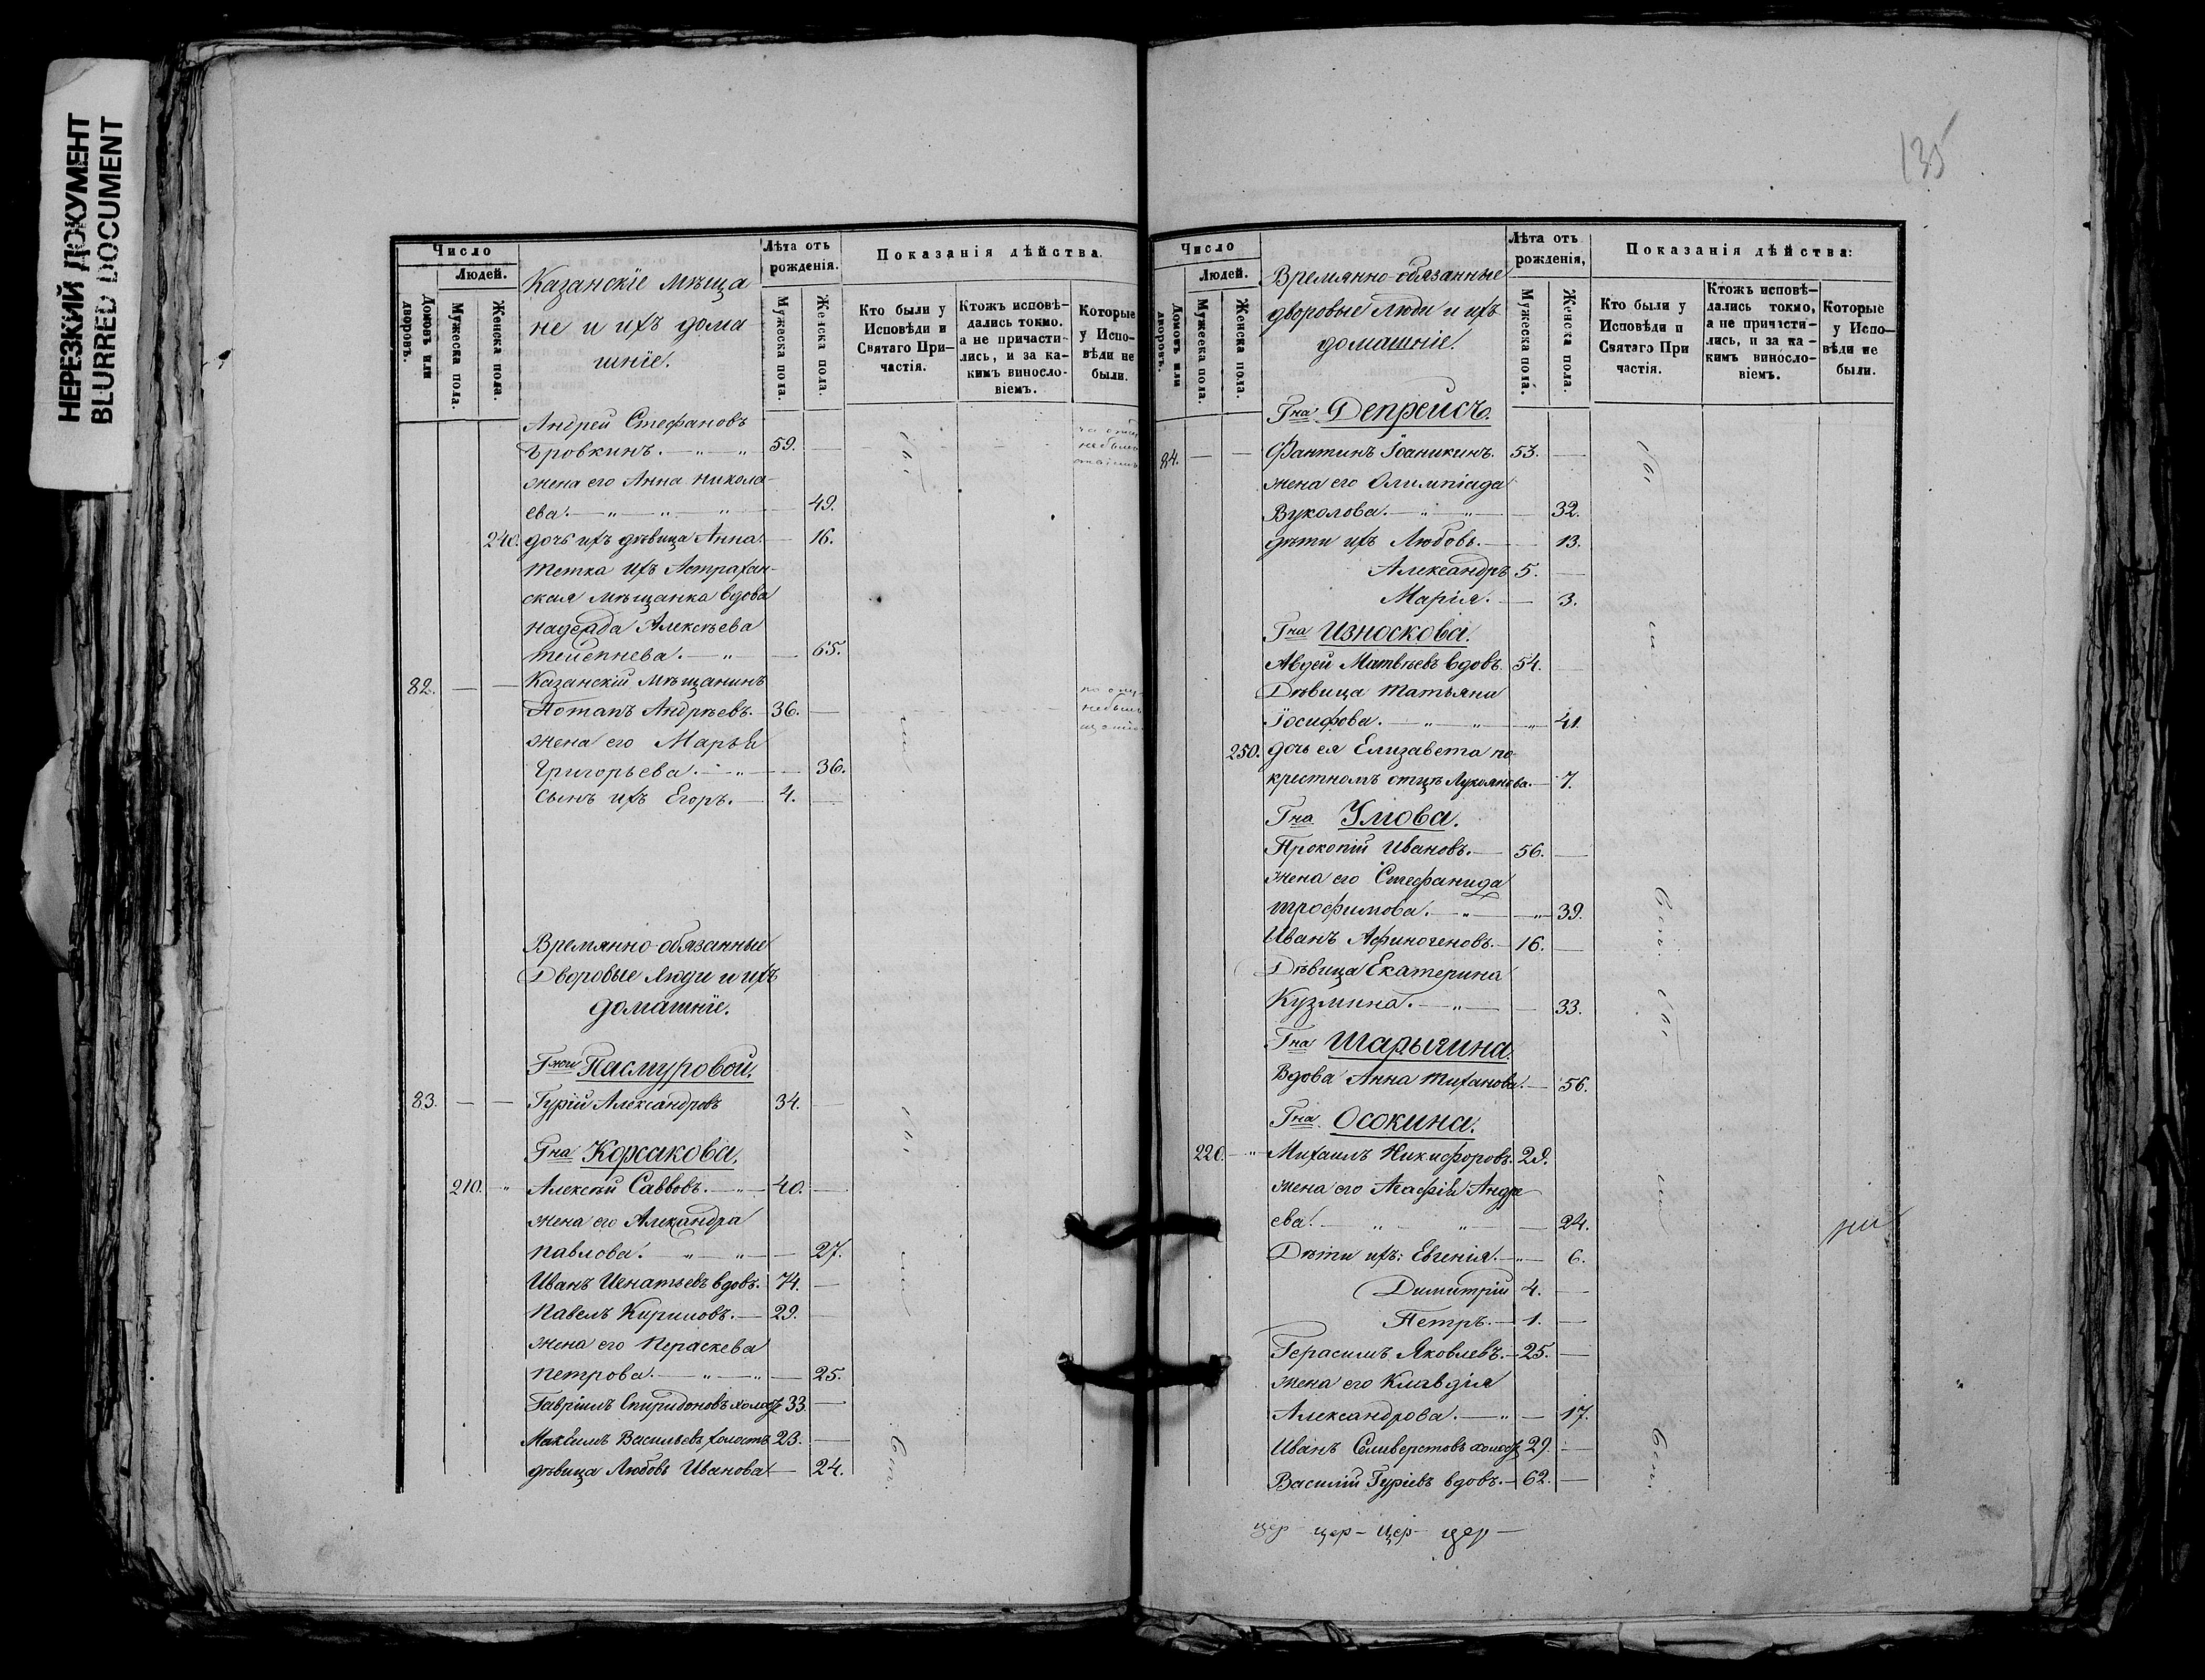 НЕРЕЗКИЙ ДОКУМЕНТ
BLURRED DOCUMENT
Число
Людей.
Домовъ или дворовъ.
Мужеска пола.
Женска пола.
Казанскіе мѣща
не и ихъ дома
шніе.
Лѣта отъ
рожденія.
Мужеска пола.
Женска пола.
Показанія дѣйства.
Кто были у
Исповѣди и
Святаго При—
частія.
Ктожъ исповѣ—
дались токмо.
а не причасти—
лись, и за ка—
кимъ винosло—
віемъ.
Которые
у Испо—
вѣди не
были.
Андрей Стефановъ
Бровкинъ. — „ — „ 59. —
жена его Анна Никола
ева. — „ — „ — „ — 49.
240. дочь ихъ дѣвица Анна. — 16.
тетка ихъ Астрахан-
ская мѣщанка вдова
Надежда Алексѣева
— „ — 65.
82. — — Казанскій мѣщанинъ
Потапъ Андрѣевъ. — 36. —
жена его Марья
Григорьева. — „ — 36.
сынъ ихъ Егоръ. — 4. —
Времянно-обязанные
Дворовые люди и ихъ
домашніе.
Гжи Пасмуровой.
83. — — Гурій Александровъ 34. —
Гна Корсакова.
210. „ Алексѣй Саввовъ. — „ — 40. —
жена его Алекандра
Павлова. — „ — „ — 27.
Иванъ Игнатьевъ вдовъ. — 74. —
Павелъ Кириловъ. — 29. —
жена его Пераскева
Петрова. — „ — „ — 25.
Гавріилъ Спиридоновъ холост 33. —
Максимъ Васильевъ холостъ 23. —
дѣвица Любовь Иванова — 24.
135
Число
Людей.
Домовъ или дворовъ.
Мужеска пола.
Женска пола.
Времянно-обязанные
дворовые люди и ихъ
домашніе.
Лѣта отъ
рожденія,
Мужеска пола.
Женска пола.
Показанія дѣйства:
Кто были у
Исповѣди и
Святаго При
частія.
Ктожъ исповѣ—
дались токмо,
а не причасти—
лись, и за ка—
кимъ винosло—
віемъ.
Которые
у Испо—
вѣди не
были.
Гна Депрейсъ.
84. — — Фантинъ Іоаникинъ. 53. —
жена его Олимпіада
Вуколова. — „ — „ — 32.
дѣти ихъ Любовь. — 13.
Александръ 5. —
Марія. — 3.
Гна Износкова.
Авдей Матвѣевъ вдовъ. 54. —
Дѣвица Татьяна
Іосифова. — „ — „ — 41.
250. дочь ея Елизавета по
крестномъ отцѣ Лукоянова. — 7.
Гна Умова.
Прокопій Ивановъ. — 56. —
жена его Стефанида
Трофимова. — „ — „ — 39.
Иванъ Афиногеновъ. — 16. —
Дѣвица Екатерина
Кузмина. — „ — 33.
Гна Шарыгина.
Вдова Анна — 56.
Гна Осокина.
220. „ Михаилъ Никифоровъ. 29.
жена его Агафія Андре
ева. — „ — „ — 24.
Дѣти ихъ: Евгенія. — „ — 6.
Димитрій 4. —
Петръ. — 1. —
Герасимъ Яковлевъ. — 25. —
жена его Клавдія
Александрова. — „ — 17.
Иванъ Селиверстовъ холост 29. —
Василій Гуріевъ вдовъ. — 62. —
цер — цер — цер — цер —